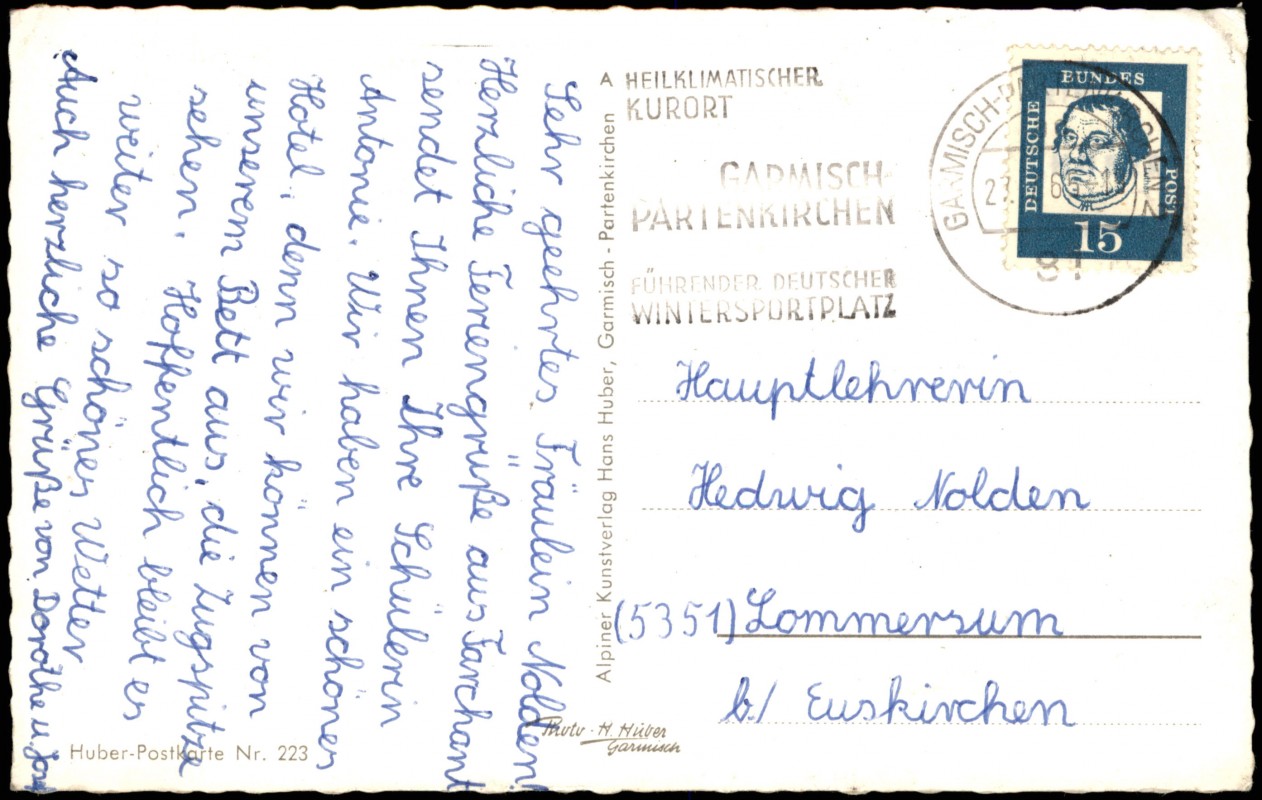 Sehr geehrtes Fräulein Nolden!
Herzliche Feriengrüße aus Farchant
sendet Ihnen Ihre Schülerin
Antonie. Wir haben ein schönes
Hotel, denn wir können von
unserem Bett aus, die Zugspitze
sehen. Hoffentlich bleibt es
weiter so schönes Wetter
Auch herzliche Grüße von Dorothe u.
Huber-Postkarte Nr. 223
Alpiner Kunstverlag Hans Huber, Garmisch - Partenkirchen A
Photo - H. Huber
Garmisch
HEILKLIMATISCHER
KURORT
GARMISCH-
PARTENKIRCHEN
FÜHRENDER DEUTSCHER
WINTERSPORTPLATZ
GARMISCH-PARTENKIRCHEN 2
DEUTSCHE
BUNDES
POST
15
Hauptlehrerin
Hedwig Nolden
(5351) Lommersum
b/ Euskirchen